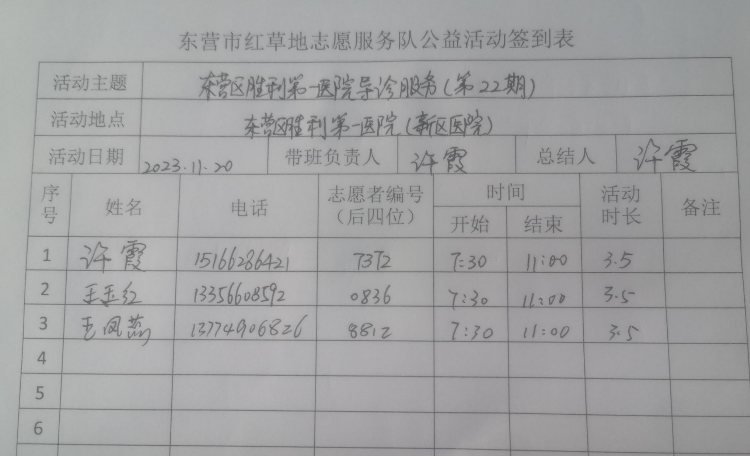 东营市红草地志愿服务队公益活动签到表
活动主题 东营区胜利第一医院导诊服务(第22期)
活动地点 东营区胜利第一医院(新区医院)
活动日期 2023.11.20 带班负责人 许霞 总结人 许霞
序号 姓名 电话 志愿者编号(后四位) 时间 开始 结束 活动时长 备注
1 许霞 15166286421 7372 7:30 11:00 3.5
2 王玉红 13356608592 0836 7:30 11:00 3.5
3 王凤燕 13774906826 8812 7:30 11:00 3.5
4
5
6